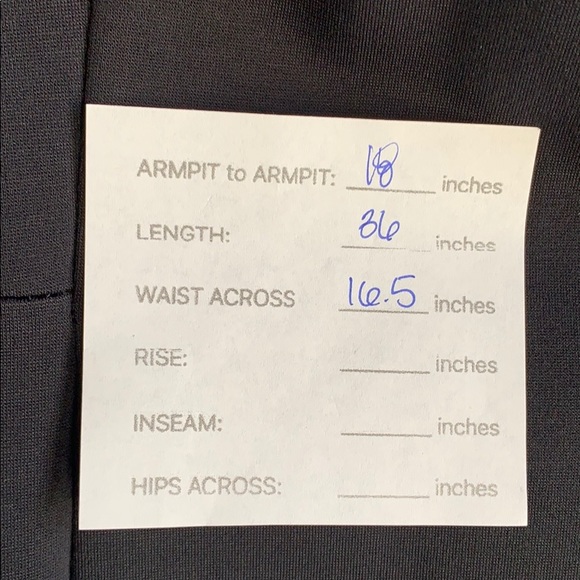 ARMPIT to ARMPIT: 18 inches
LENGTH: 36 inches
WAIST ACROSS 16.5 inches
RISE: ______ inches
INSEAM: ______ inches
HIPS ACROSS: ______ inches